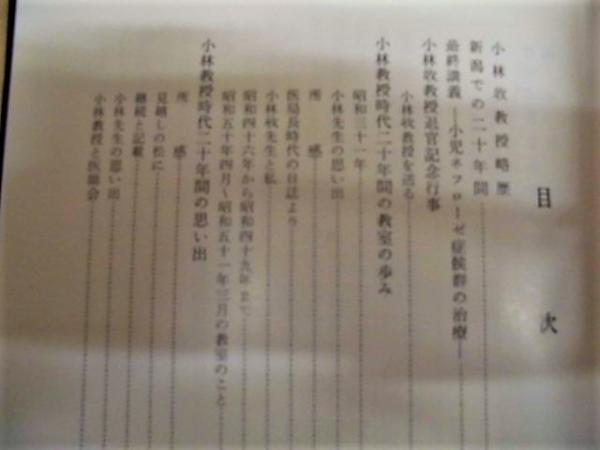 目次
小林收教授略歴
新潟での二十年間
最終講義―小児ネフローゼ症候群の治療―
小林收教授退官記念行事
小林收教授を送る
小林教授時代二十年間の教室の歩み
昭和三十一年
小林先生の思い出
所感
医局長時代の日誌より
小林收先生と私
昭和四十六年から昭和四十九年まで
昭和五十年四月～昭和五十一年三月の教室のこと
小林教授時代二十年間の思い出
所感
見越しの松に
継続と記載
小林先生の思い出
小林教授と医師会